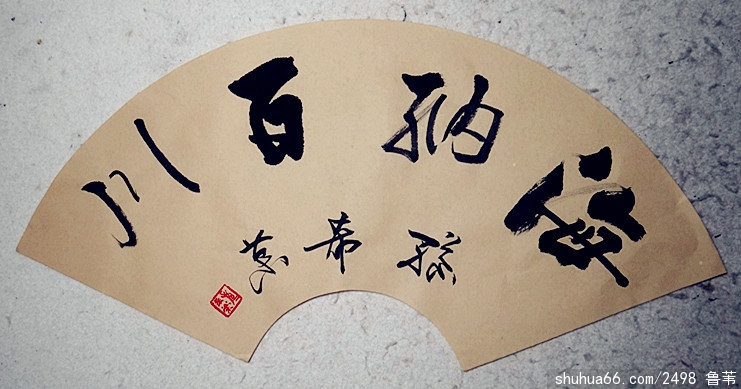 海纳百川
孙希
shuhua66.com/2498 鲁苇